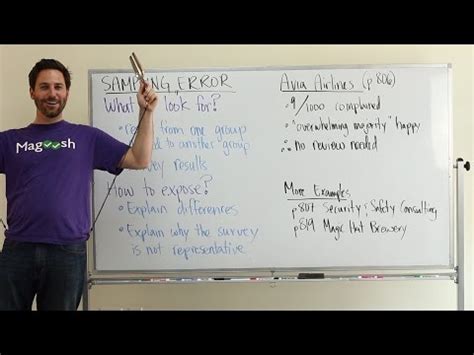 Magoosh
SAMPLING ERROR
What look for?
from one group
to another group
results
How to expose?
• Explain differences
• Explain why the survey
is not representative
Avia Airlines (p 806)
• 9/1000 complained
• "overwhelming majority" happy
∴ no review needed
More Examples
p807 Security & Safety Consulting
p819 Magic Hat Brewery